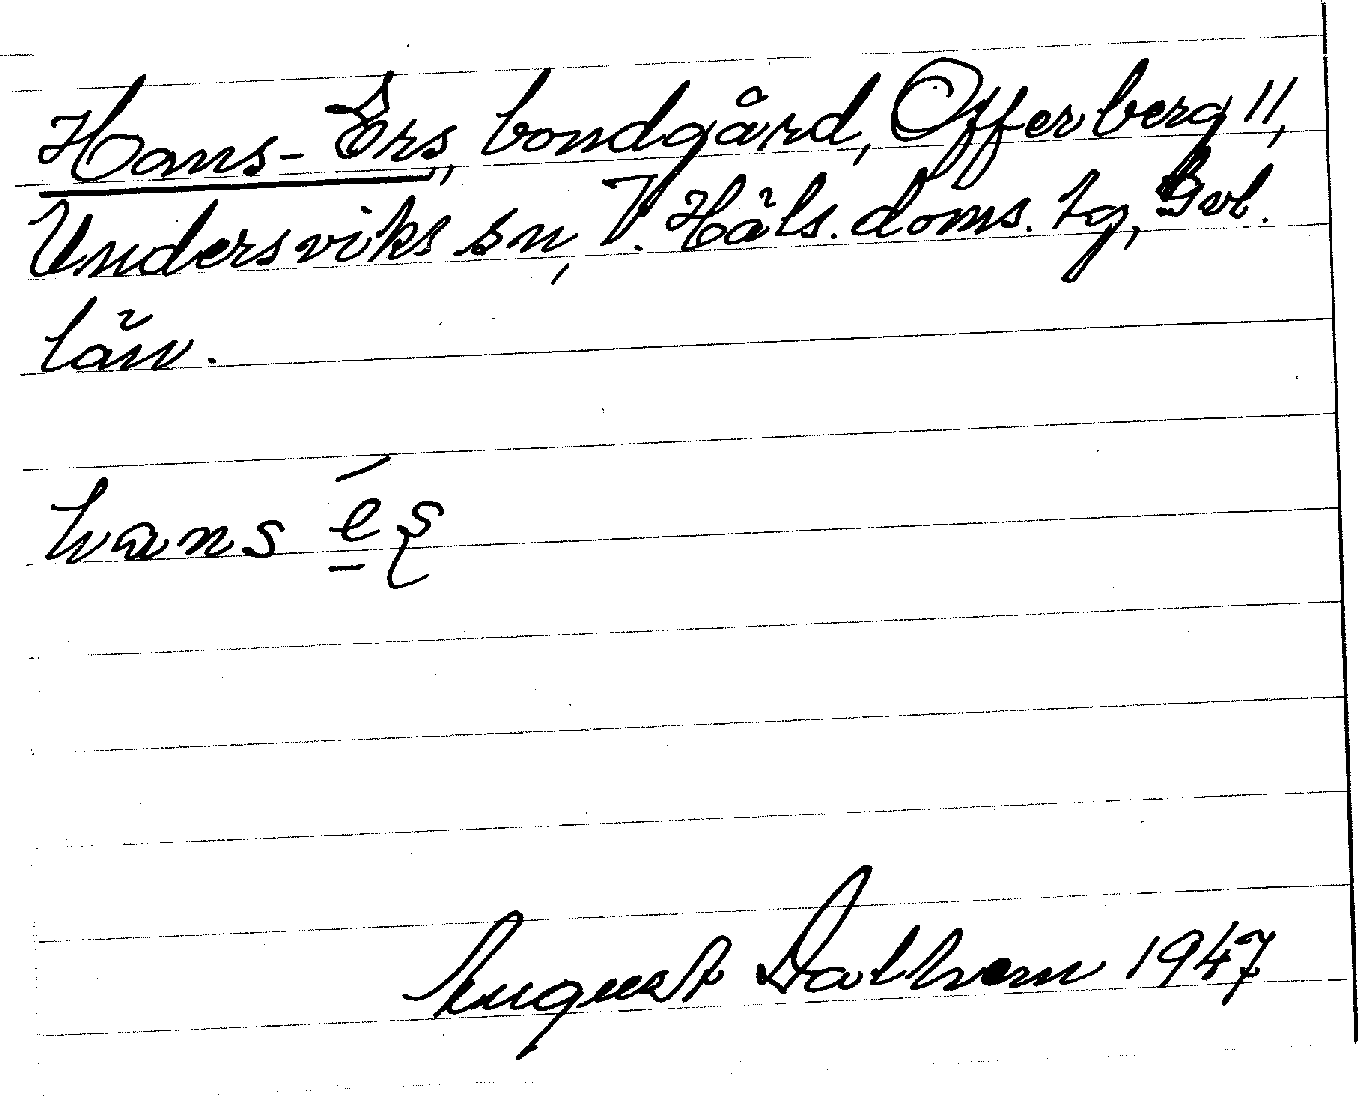 Hans-Ers, bondgård, Offerberg 11,
Undersviks sn, V. Häls. doms. tg, Gvl.
län.
hans é̱ʂ
August Dalhem 1947